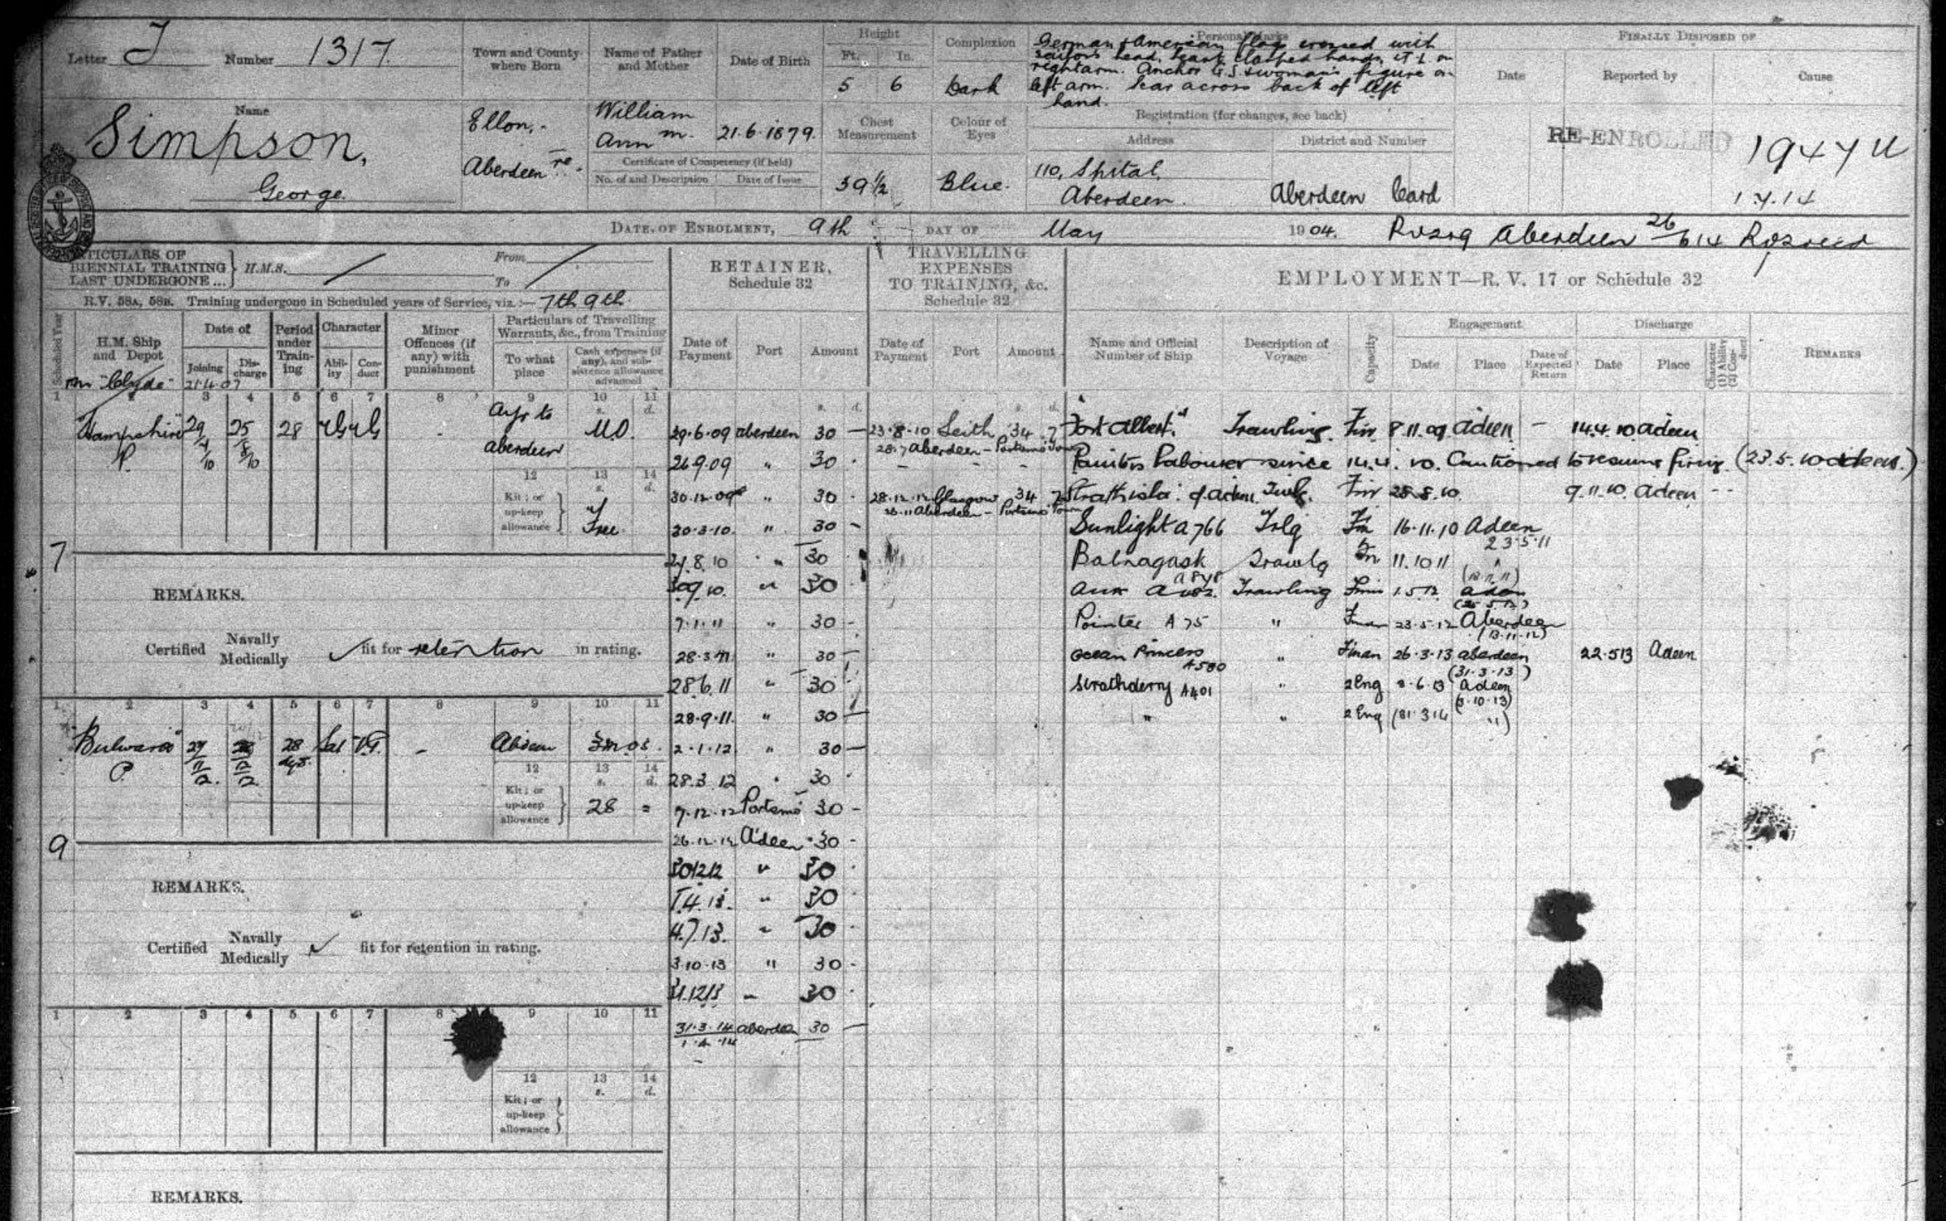 Letter T Number 1317.
Name
Simpson,
George.
Town and County where Born
Ellon,
Aberdeen re.
Name of Father and Mother
William
Ann M.
Date of Birth
21.6.1879.
Certificate of Competency (if held)
No. of and Description Date of Issue
Height
Ft. In.
5 6
Chest Measurement
39 1/2
Complexion
Dark
Colour of Eyes
Blue.
Personal Marks
German & American flag crossed with
sailors head, heart clasped hands, on
right arm. Anchor G.S. & woman's figure on
left arm. Scar across back of left
hand.
Registration (for changes, see back)
Address District and Number
110, Spital, Aberdeen Card
Aberdeen.
FINALLY DISPOSED OF
Date Reported by Cause
RE-ENROLLED 1947 U
1.4.14
DATE OF ENROLMENT, 9th DAY OF May 1904. Aberdeen 26/6 14
PARTICULARS OF
BIENNIAL TRAINING
LAST UNDERGONE ... } H.M.S. From
To
R.V. 58A, 58B. Training undergone in Scheduled years of Service, viz.:— 7th 9th
Scheduled Year
H.M. Ship and Depot
Date of
Joining Discharge
Period under Training
Character
Ability Conduct
Minor Offences (if any) with punishment
Particulars of Travelling Warrants, &c., from Training
To what place
Cash expenses (if any), and subsistence allowance advanced
"Clyde" 21.4.07
1 2 3 4 5 6 7 8 9 10 11
s. d.
Hampshire 29/4/10 25/5/10 28 VG VG - Ayr to M.O.
P. Aberdeen
12 13 14
s. d.
Kit; or up-keep allowance } Free
7
REMARKS.
Certified Navally Medically fit for retention in rating.
1 2 3 4 5 6 7 8 9 10 11
"Bulwark" 27/11/12. 12/12 28 dys. Sat V.G. - Abdeen
P.
12 13 14
s. d.
Kit; or up-keep allowance } 28 =
9
REMARKS.
Certified Navally Medically fit for retention in rating.
1 2 3 4 5 6 7 8 9 10 11
12 13 14
s. d.
Kit; or up-keep allowance }
REMARKS.
RETAINER,
Schedule 32
Date of Payment Port Amount
s. d.
29.6.09 Aberdeen 30 —
26.9.09 " 30 -
30.12.09 " 30 -
30.3.10. " 30 -
8.10 " 30
30.9.10. " 30
7.1.11 " 30 -
28.3.11 " 30 -
28.6.11 " 30
28.9.11. " 30 —
2.1.12 " 30 —
28.3.12 " 30 -
7.12.12 Portsmo 30 -
26.12.12 A'deen 30 -
30.12.12 " 30 -
1.4.13. " 30 -
4.7.13. " 30 -
3.10.13 " 30 -
31.12.13 " 30 -
31.3.14 Aberdeen 30 —
1.4.14
TRAVELLING
EXPENSES
TO TRAINING, &c.
Schedule 32
Date of Payment Port Amount
s. d.
23.8.10 Leith 34 7
Aberdeen - Portsmo
28.12.12 Glasgow 34 7
Aberdeen - Portsmo
EMPLOYMENT—R. V. 17 or Schedule 32
Name and Official Number of Ship Description of Voyage Capacity
Engagement
Date Place Date of Expected Return
Discharge
Date Place
Character (1) Ability (2) Conduct
REMARKS
"Fort Albert" Trawling Fir 8.11.09 Adeen — 14.4.10 Adeen
Painters Labourer since 14.4.10. Cautioned to resume firing (23.5.10 Adeen.)
Strathisla of Adeen Twlg. Fir 25.8.10. 9.11.10 Adeen - -
Sunlight A 766 Trlg Fn 16.11.10 Adeen
23.5.11
Balnagask Trawlg Fn 11.10.11 "
Trawling Firn 1.5.12. Adeen
Pointer A 75 " Fman 23.5.12 Aberdeen
(13.11.12)
Ocean Princess A580 " Fman 26.3.13 Aberdeen 22.5.13 Adeen
(31.3.13)
Strathderry A401 " 2 Eng 8.6.13 Adeen
(3.10.13)
" " 2 Eng (31.3.14 ")